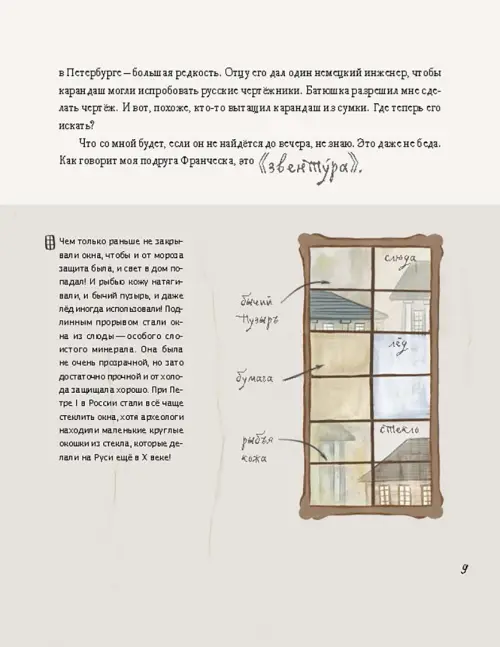 в Петербурге — большая редкость. Отцу его дал один немецкий инженер, чтобы
карандаш могли испробовать русские чертёжники. Батюшка разрешил мне сде-
лать чертёж. И вот, похоже, кто-то вытащил карандаш из сумки. Где теперь его
искать?
Что со мной будет, если он не найдётся до вечера, не знаю. Это даже не беда.
Как говорит моя подруга Франческа, это «звентýра».
Чем только раньше не закры-
вали окна, чтобы и от мороза
защита была, и свет в дом по-
падал! И рыбью кожу натяги-
вали, и бычий пузырь, и даже
лёд иногда использовали! Под-
линным прорывом стали ок-
на из слюды — особого сло-
истого минерала. Она была
не очень прозрачной, но зато
достаточно прочной и от холо-
да защищала хорошо. При Пе-
тре I в России стали всё чаще
стеклить окна, хотя археологи
находили маленькие круглые
окошки из стекла, которые де-
лали на Руси ещё в X веке!
слюда
бычий
пузырь
лёд
бумага
стекло
рыбья
кожа
9